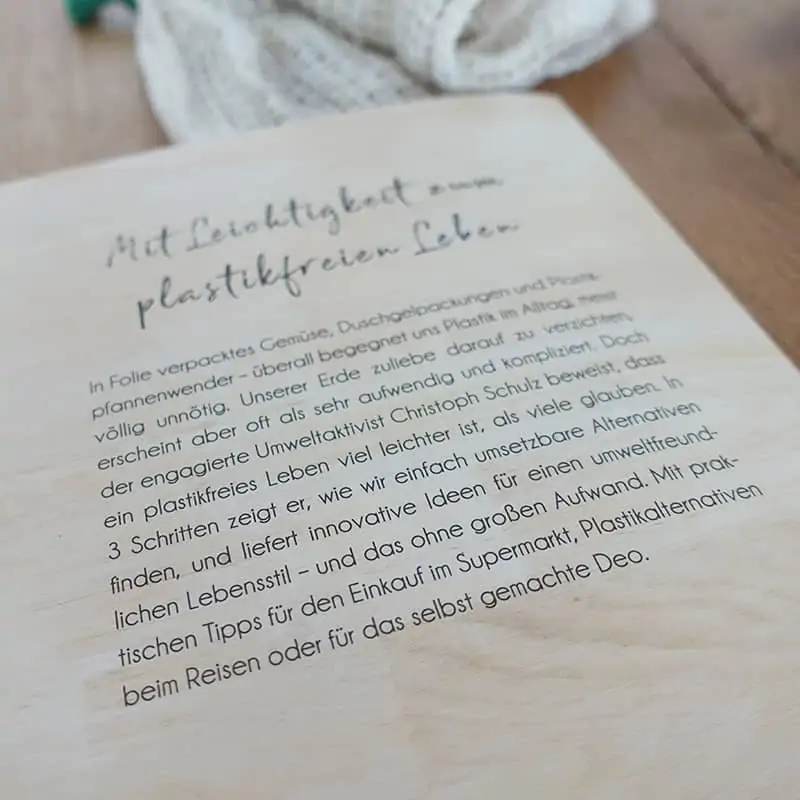 Mit Leichtigkeit zum
plastikfreien Leben
In Folie verpacktes Gemüse, Duschgelpackungen und Plastik-
pfannenwender – überall begegnet uns Plastik im Alltag, meist
völlig unnötig. Unserer Erde zuliebe darauf zu verzichten,
erscheint aber oft als sehr aufwendig und kompliziert. Doch
der engagierte Umweltaktivist Christoph Schulz beweist, dass
ein plastikfreies Leben viel leichter ist, als viele glauben. In
3 Schritten zeigt er, wie wir einfach umsetzbare Alternativen
finden, und liefert innovative Ideen für einen umweltfreund-
lichen Lebensstil – und das ohne großen Aufwand. Mit prak-
tischen Tipps für den Einkauf im Supermarkt, Plastikalternativen
beim Reisen oder für das selbst gemachte Deo.